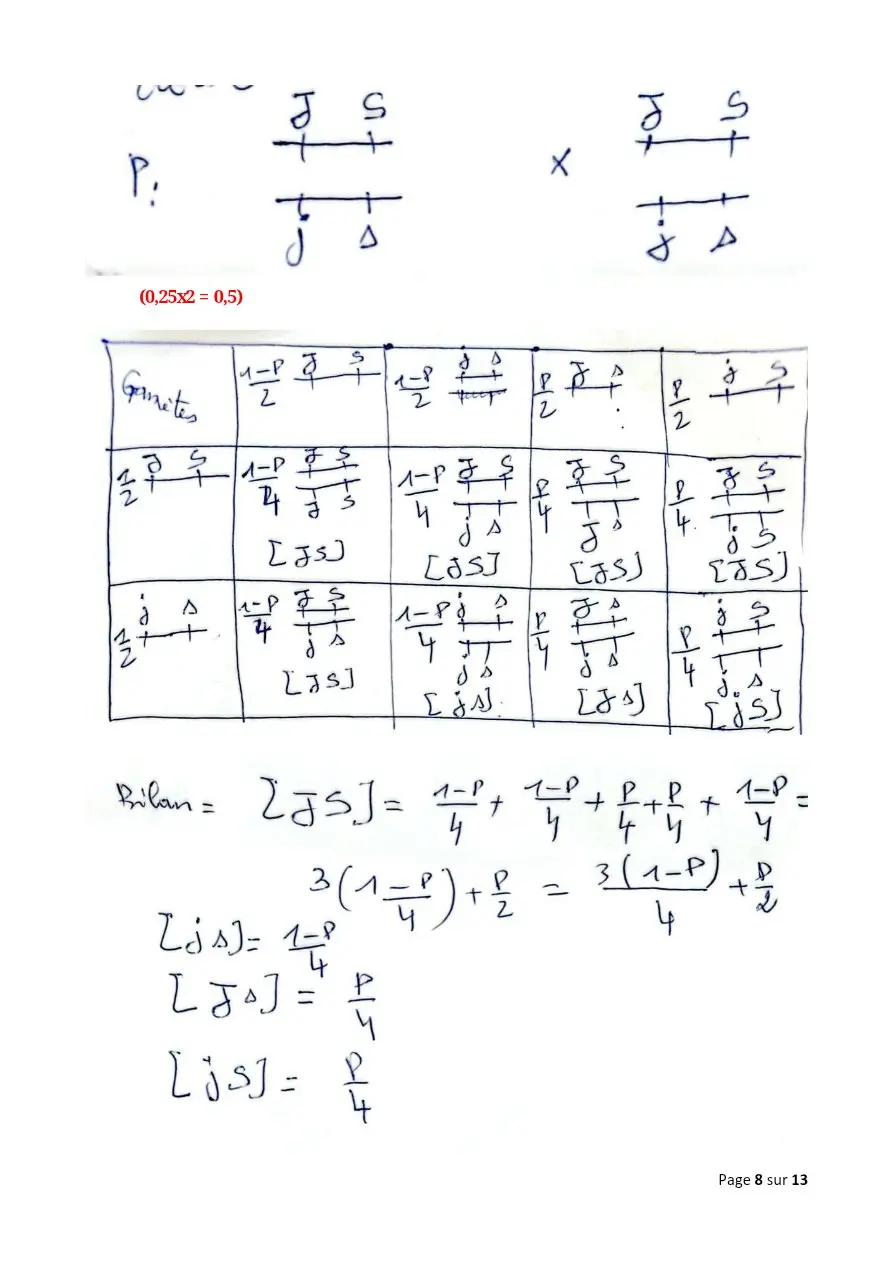 J S J S
P: x
j s j s
(0,25x2 = 0,5)
Gamètes 1-P/2 J S 1-P/2 j s P/2 J s P/2 j S
1/2 J S 1-P/4 J S J S [JS] 1-P/4 J S j s [JS] P/4 J S J s [JS] P/4 J S j S [JS]
1/2 j s 1-P/4 J S j s [JS] 1-P/4 j s j s [js]. P/4 J s j s [Js] P/4 j S j s [jS]
Bilan = [JS] = 1-P/4 + 1-P/4 + P/4 + P/4 + 1-P/4 =
3(1-P/4) + P/2 = 3(1-P)/4 + P/2
[js] = 1-P/4
[Js] = P/4
[jS] = P/4
Page 8 sur 13